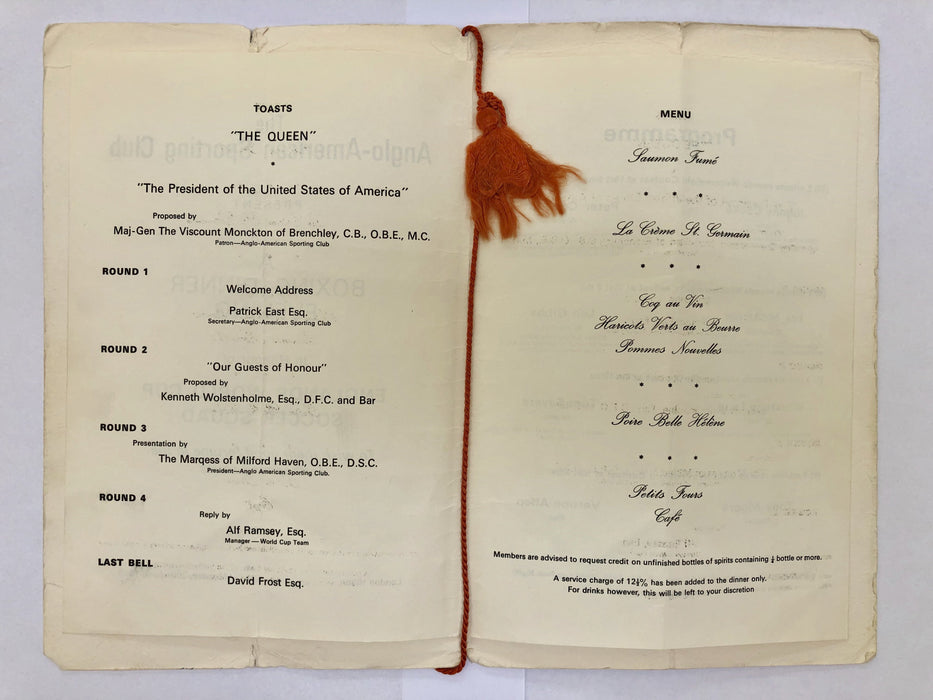 TOASTS
"THE QUEEN"
*
"The President of the United States of America"
Proposed by
Maj-Gen The Viscount Monckton of Brenchley, C.B., O.B.E., M.C.
Patron—Anglo-American Sporting Club
ROUND 1
Welcome Address
Patrick East Esq.
Secretary—Anglo-American Sporting Club
ROUND 2
"Our Guests of Honour"
Proposed by
Kenneth Wolstenholme, Esq., D.F.C. and Bar
ROUND 3
Presentation by
The Marqess of Milford Haven, O.B.E., D.S.C.
President—Anglo American Sporting Club.
ROUND 4
Reply by
Alf Ramsey, Esq.
Manager—World Cup Team
LAST BELL
David Frost Esq.
MENU
Saumon Fumé
* * *
La Crème St. Germain
* * *
Coq au Vin
Haricots Verts au Beurre
Pommes Nouvelles
* * *
Poire Belle Hélène
* * *
Petits Fours
Café
Members are advised to request credit on unfinished bottles of spirits containing ½ bottle or more.
A service charge of 12½% has been added to the dinner only.
For drinks however, this will be left to your discretion